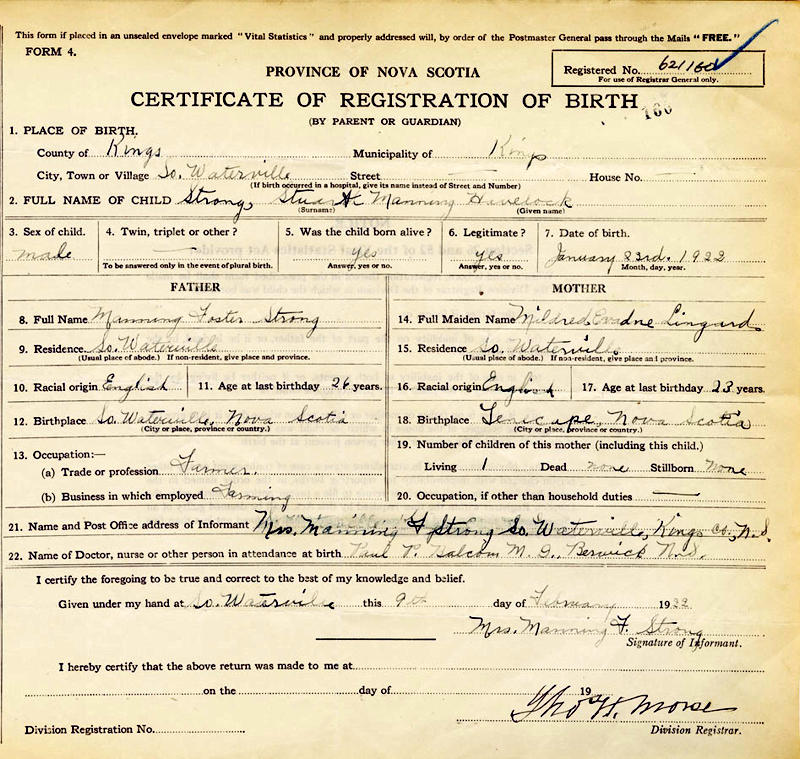 This form if placed in an unsealed envelope marked "Vital Statistics" and properly addressed will, by order of the Postmaster General pass through the Mails "FREE."
FORM 4.
Registered No. 621160
For use of Registrar General only.
PROVINCE OF NOVA SCOTIA
CERTIFICATE OF REGISTRATION OF BIRTH
160
(BY PARENT OR GUARDIAN)
1. PLACE OF BIRTH.
County of Kings Municipality of Kings
City, Town or Village So. Waterville Street — House No. —
(If birth occurred in a hospital, give its name instead of Street and Number)
2. FULL NAME OF CHILD Strong, Stuart Manning Havelock
(Surname) (Given name)
3. Sex of child. 4. Twin, triplet or other? 5. Was the child born alive? 6. Legitimate? 7. Date of birth.
male — yes yes January 23rd. 1922
To be answered only in the event of plural birth. Answer, yes or no. Answer, yes or no. Month, day, year.
FATHER MOTHER
8. Full Name Manning Foster Strong 14. Full Maiden Name Mildred Evadne Lingard
9. Residence So. Waterville 15. Residence So. Waterville
(Usual place of abode.) If non-resident, give place and province. (Usual place of abode.) If non-resident, give place and province.
10. Racial origin English 11. Age at last birthday 26 years. 16. Racial origin English 17. Age at last birthday 23 years.
12. Birthplace So. Waterville, Nova Scotia 18. Birthplace Tenecape, Nova Scotia
(City or place, province or country.) (City or place, province or country.)
13. Occupation:— 19. Number of children of this mother (including this child.)
(a) Trade or profession Farmer. Living 1 Dead none Stillborn None
(b) Business in which employed Farming 20. Occupation, if other than household duties —
21. Name and Post Office address of Informant Mrs. Manning F Strong So. Waterville, Kings Co., N.S.
22. Name of Doctor, nurse or other person in attendance at birth Paul P. M. D., Berwick N.S.
I certify the foregoing to be true and correct to the best of my knowledge and belief.
Given under my hand at So. Waterville this 9th day of February 1922
Mrs. Manning F. Strong
Signature of Informant.
I hereby certify that the above return was made to me at
on the day of 19
Thos H. Morse
Division Registration No. Division Registrar.